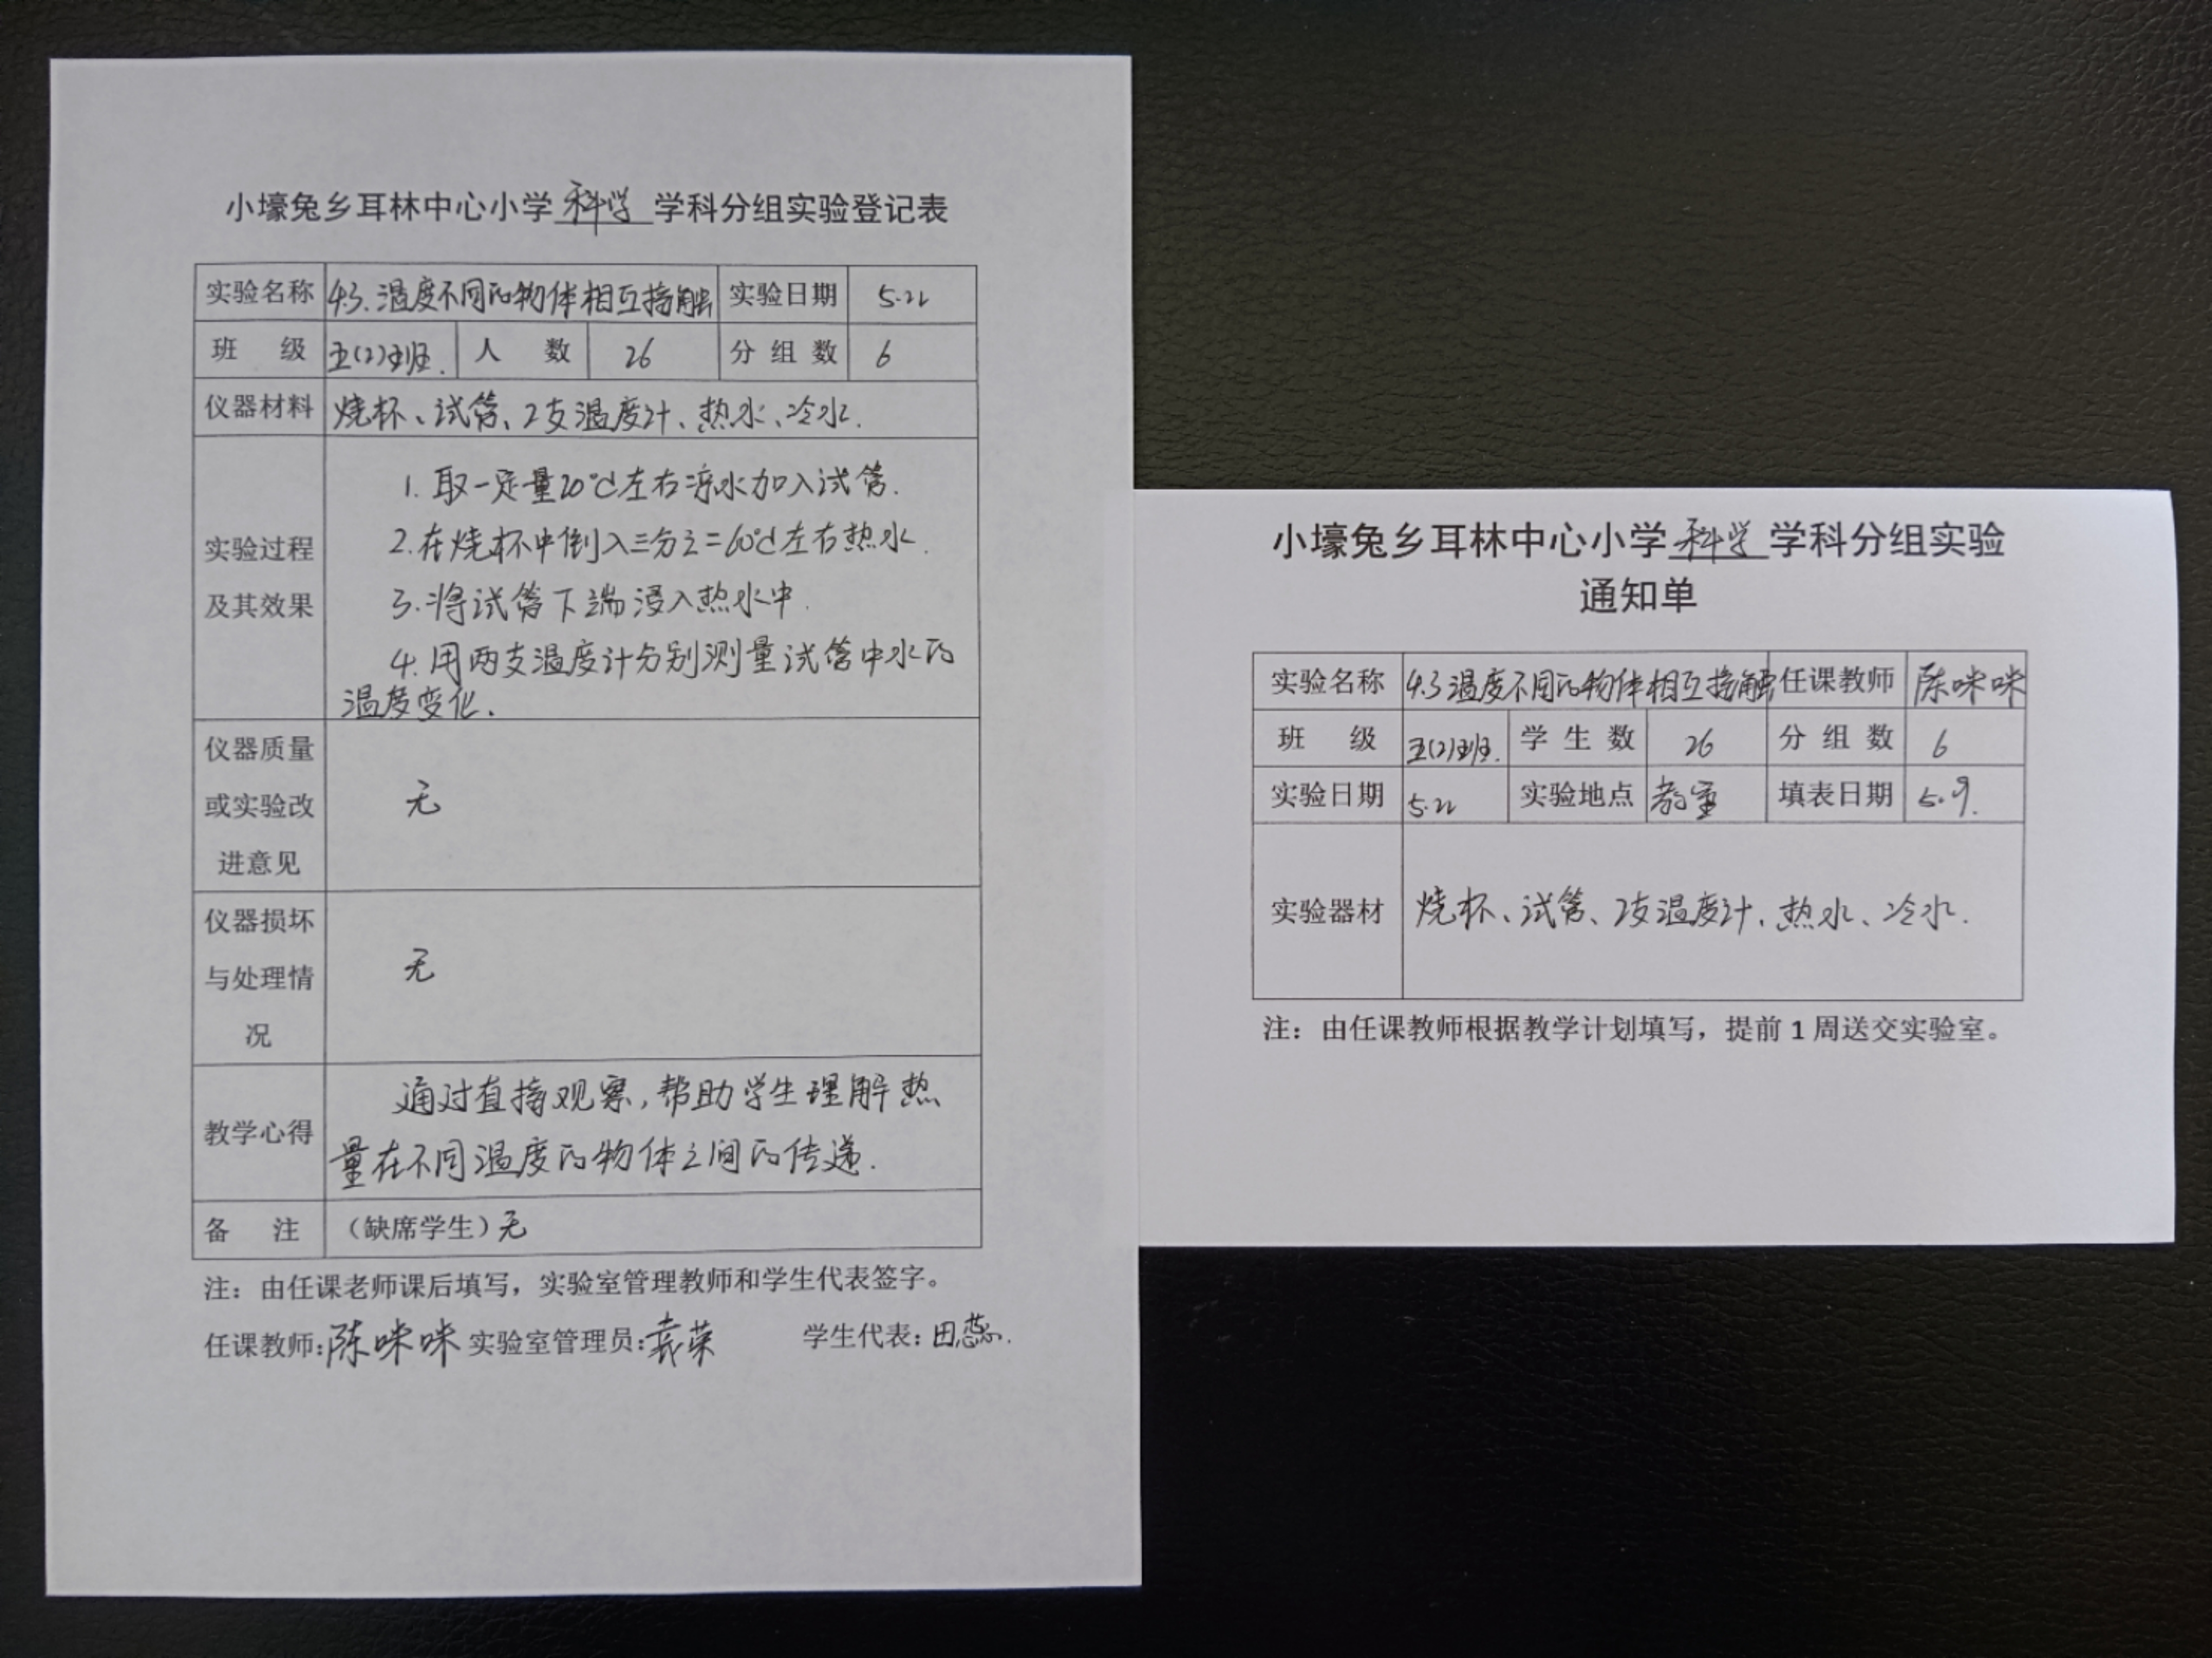 小壕兔乡耳林中心小学科学学科分组实验登记表
实验名称 4.3.温度不同的物体相互接触 实验日期 5.22
班 级 五(2)班. 人 数 26 分 组 数 6
仪器材料 烧杯、试管、2支温度计、热水、冷水.
实验过程
及其效果
1.取一定量20℃左右凉水加入试管.
2.在烧杯中倒入三分之二60℃左右热水.
3.将试管下端浸入热水中.
4.用两支温度计分别测量试管中水的
温度变化.
仪器质量
或实验改
进意见
无
仪器损坏
与处理情
况
无
教学心得
通过直接观察,帮助学生理解热
量在不同温度的物体之间的传递.
备 注 (缺席学生)无
注：由任课老师课后填写，实验室管理教师和学生代表签字。
任课教师:陈咪咪 实验室管理员:袁荣 学生代表:田蕊.
小壕兔乡耳林中心小学科学学科分组实验
通知单
实验名称 4.3温度不同的物体相互接触 任课教师 陈咪咪
班 级 五(2)班. 学 生 数 26 分 组 数 6
实验日期 5.22 实验地点 教室 填表日期 5.9.
实验器材 烧杯、试管、2支温度计、热水、冷水.
注：由任课教师根据教学计划填写，提前 1 周送交实验室。